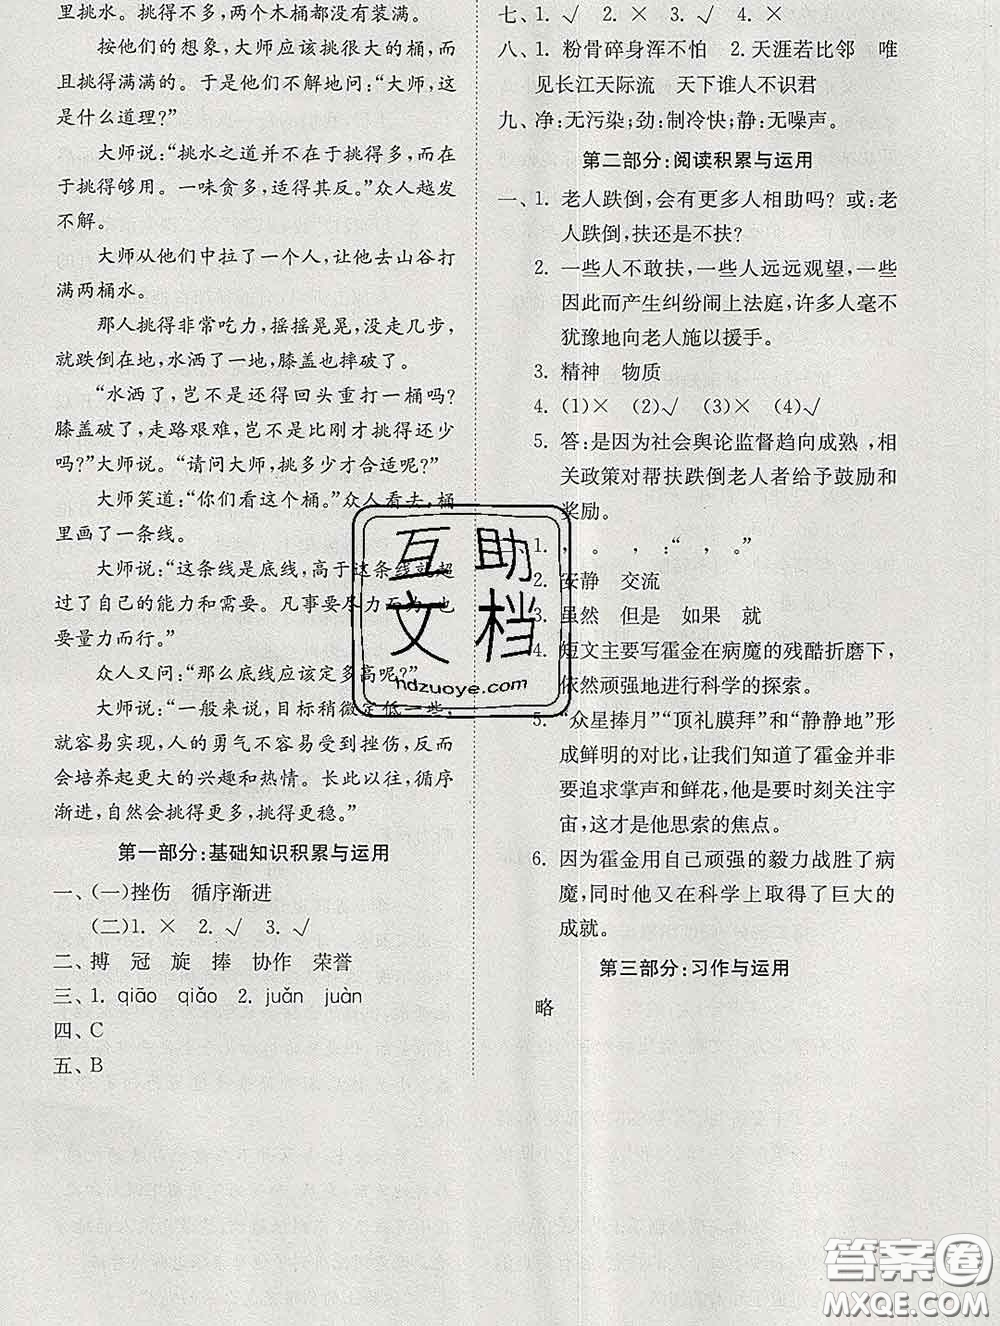 里挑水。挑得不多，两个木桶都没有装满。
按他们的想象，大师应该挑很大的桶，而
且挑得满满的。于是他们不解地问：“大师，这
是什么道理？”
大师说：“挑水之道并不在于挑得多，而在
于挑得够用。一味贪多，适得其反。”众人越发
不解。
大师从他们中拉了一个人，让他去山谷打
满两桶水。
那人挑得非常吃力，摇摇晃晃，没走几步，
就跌倒在地，水洒了一地，膝盖也摔破了。
“水洒了，岂不是还得回头重打一桶吗？
膝盖破了，走路艰难，岂不是比刚才挑得还少
吗？”大师说。“请问大师，挑多少才合适呢？”
大师笑道：“你们看这个桶。”众人看去，桶
里画了一条线。
大师说：“这条线是底线，高于这条线就超
过了自己的能力和需要。凡事要尽力而为，也
要量力而行。”
众人又问：“那么底线应该定多高呢？”
大师说：“一般来说，目标稍微定低一些，
就容易实现，人的勇气不容易受到挫伤，反而
会培养起更大的兴趣和热情。长此以往，循序
渐进，自然会挑得更多，挑得更稳。”
第一部分：基础知识积累与运用
一、(一)挫伤 循序渐进
(二)1. × 2. √ 3. √
二、搏 冠 旋 捧 协作 荣誉
三、1. qiāo qiǎo 2. juǎn juàn
四、C
五、B
七、1. √ 2. × 3. √ 4. ×
八、1. 粉骨碎身浑不怕 2. 天涯若比邻 唯
见长江天际流 天下谁人不识君
九、净：无污染；劲：制冷快；静：无噪声。
第二部分：阅读积累与运用
一、1. 老人跌倒，会有更多人相助吗？或：老
人跌倒，扶还是不扶？
2. 一些人不敢扶，一些人远远观望，一些
因此而产生纠纷闹上法庭，许多人毫不
犹豫地向老人施以援手。
3. 精神 物质
4. (1)× (2)√ (3)× (4)√
5. 答：是因为社会舆论监督趋向成熟，相
关政策对帮扶跌倒老人者给予鼓励和
奖励。
1. ， 。 ，：“ ， 。”
2. 安静 交流
3. 虽然 但是 如果 就
4. 短文主要写霍金在病魔的残酷折磨下，
依然顽强地进行科学的探索。
5. “众星捧月”“顶礼膜拜”和“静静地”形
成鲜明的对比，让我们知道了霍金并非
要追求掌声和鲜花，他是要时刻关注宇
宙，这才是他思索的焦点。
6. 因为霍金用自己顽强的毅力战胜了病
魔，同时他又在科学上取得了巨大的
成就。
第三部分：习作与运用
略
互助
文档
hdzuoye.com
答案圈
MXQE.COM